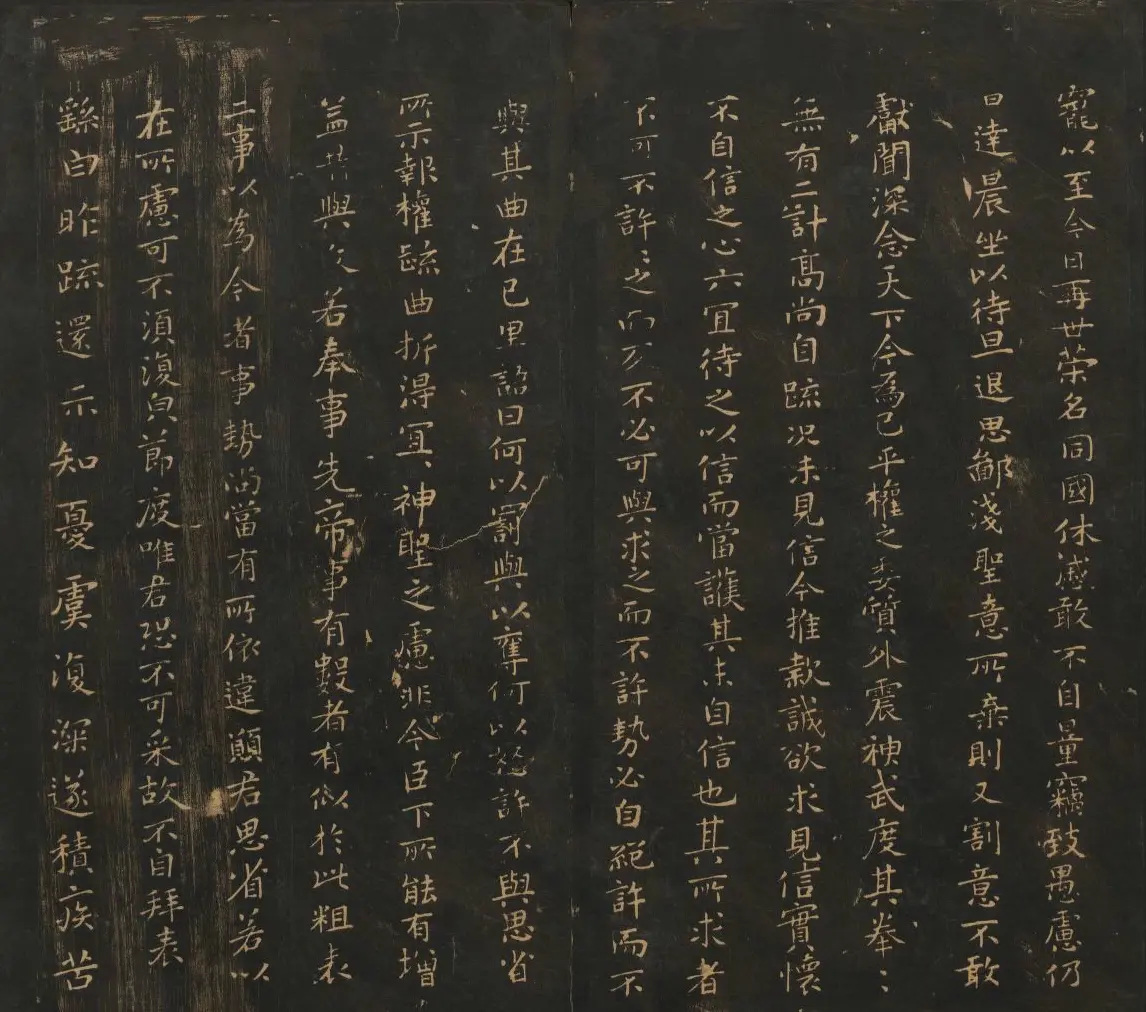 寵以至今日再世榮名同國休慼敢不自量竊致愚慮仍
日達晨坐以待旦退思鄙淺聖意所棄則又割意不敢
獻聞深念天下今為已平權之委質外震神武度其拳〻
無有二計高尚自疏況未見信今推款誠欲求見信實懷
不自信之心亦宜待之以信而當護其未自信也其所求者
不可不許〻之而反不必可與求之而不許勢必自絕許而不
與其曲在己里語曰何以罰與以奪何以怒許不與思省
所示報權疏曲折得宜〻神聖之慮非今臣下所能有增
益昔與文若奉事先帝事有數者有似於此粗表
二事以為今者事勢尚當有所依違願君思省若以
在所慮可不須復皃節度唯君恐不可采故不自拜表
繇白昨疏還示知憂虞復深遂積疾苦